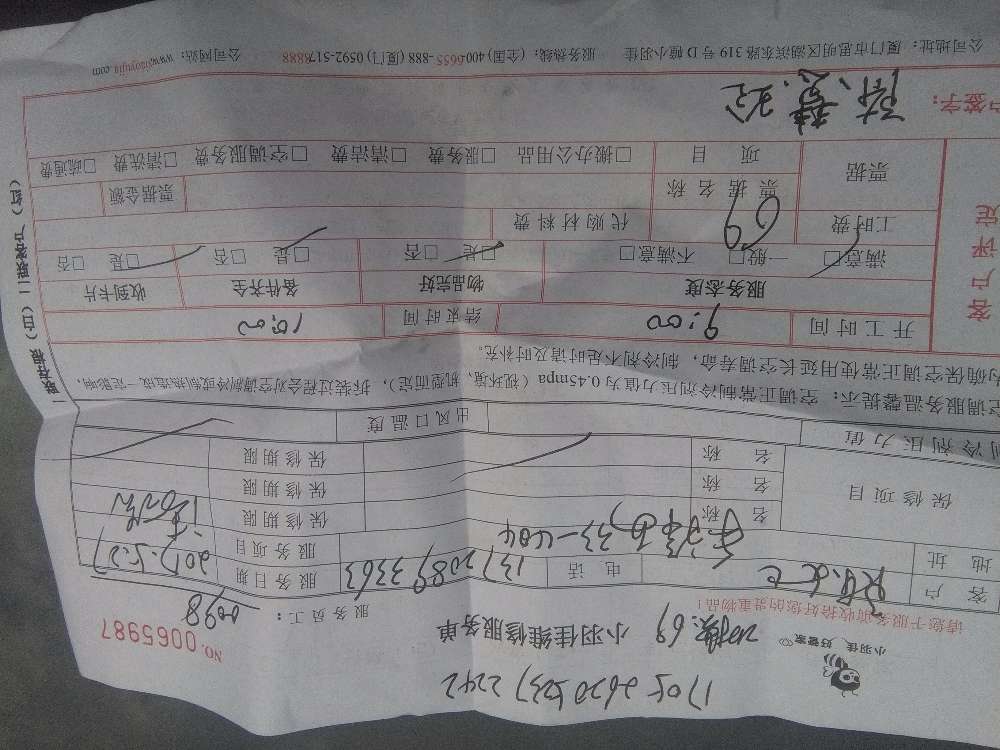 1705 2620 5237 2242
小羽佳 好管家
69 小羽佳维修服务单
NO. 0065987
请您于服务前收拾好您的贵重物品！
服务员工：
客户 电话 137 2089 3363 服务日期 2017.5.27
地址 33-404 服务项目
保修项目 名称 保修期限
名称 保修期限
名称 保修期限
制冷剂压力值 出风口温度
空调服务温馨提示：空调正常制冷剂压力值为0.45mpa（视环境、机型而定），拆装过程会对空调制冷或制热造成一定影响，
为确保空调正常使用延长空调寿命，制冷剂不足请及时补充。
开工时间 9:00 结束时间 10:00
客户评定
服务态度 物品完好 备件齐全 收到卡片
满意□ 一般□ 不满意□ □是 □否 □是 □否 □是 □否
工时费 69 代购材料费
票据 票据名称 票据金额
项目 □搬办公用品 □服务费 □清洁费 □空调服务费 □清洗费 □疏通费
户签字：
公司地址：厦门市思明区湖滨东路319号D幢小羽佳 服务热线：（全国）400-6655-888（厦门）0592-5176888 公司网站：www.xiaoyujia.com
一联存根（白）二联客户（红）